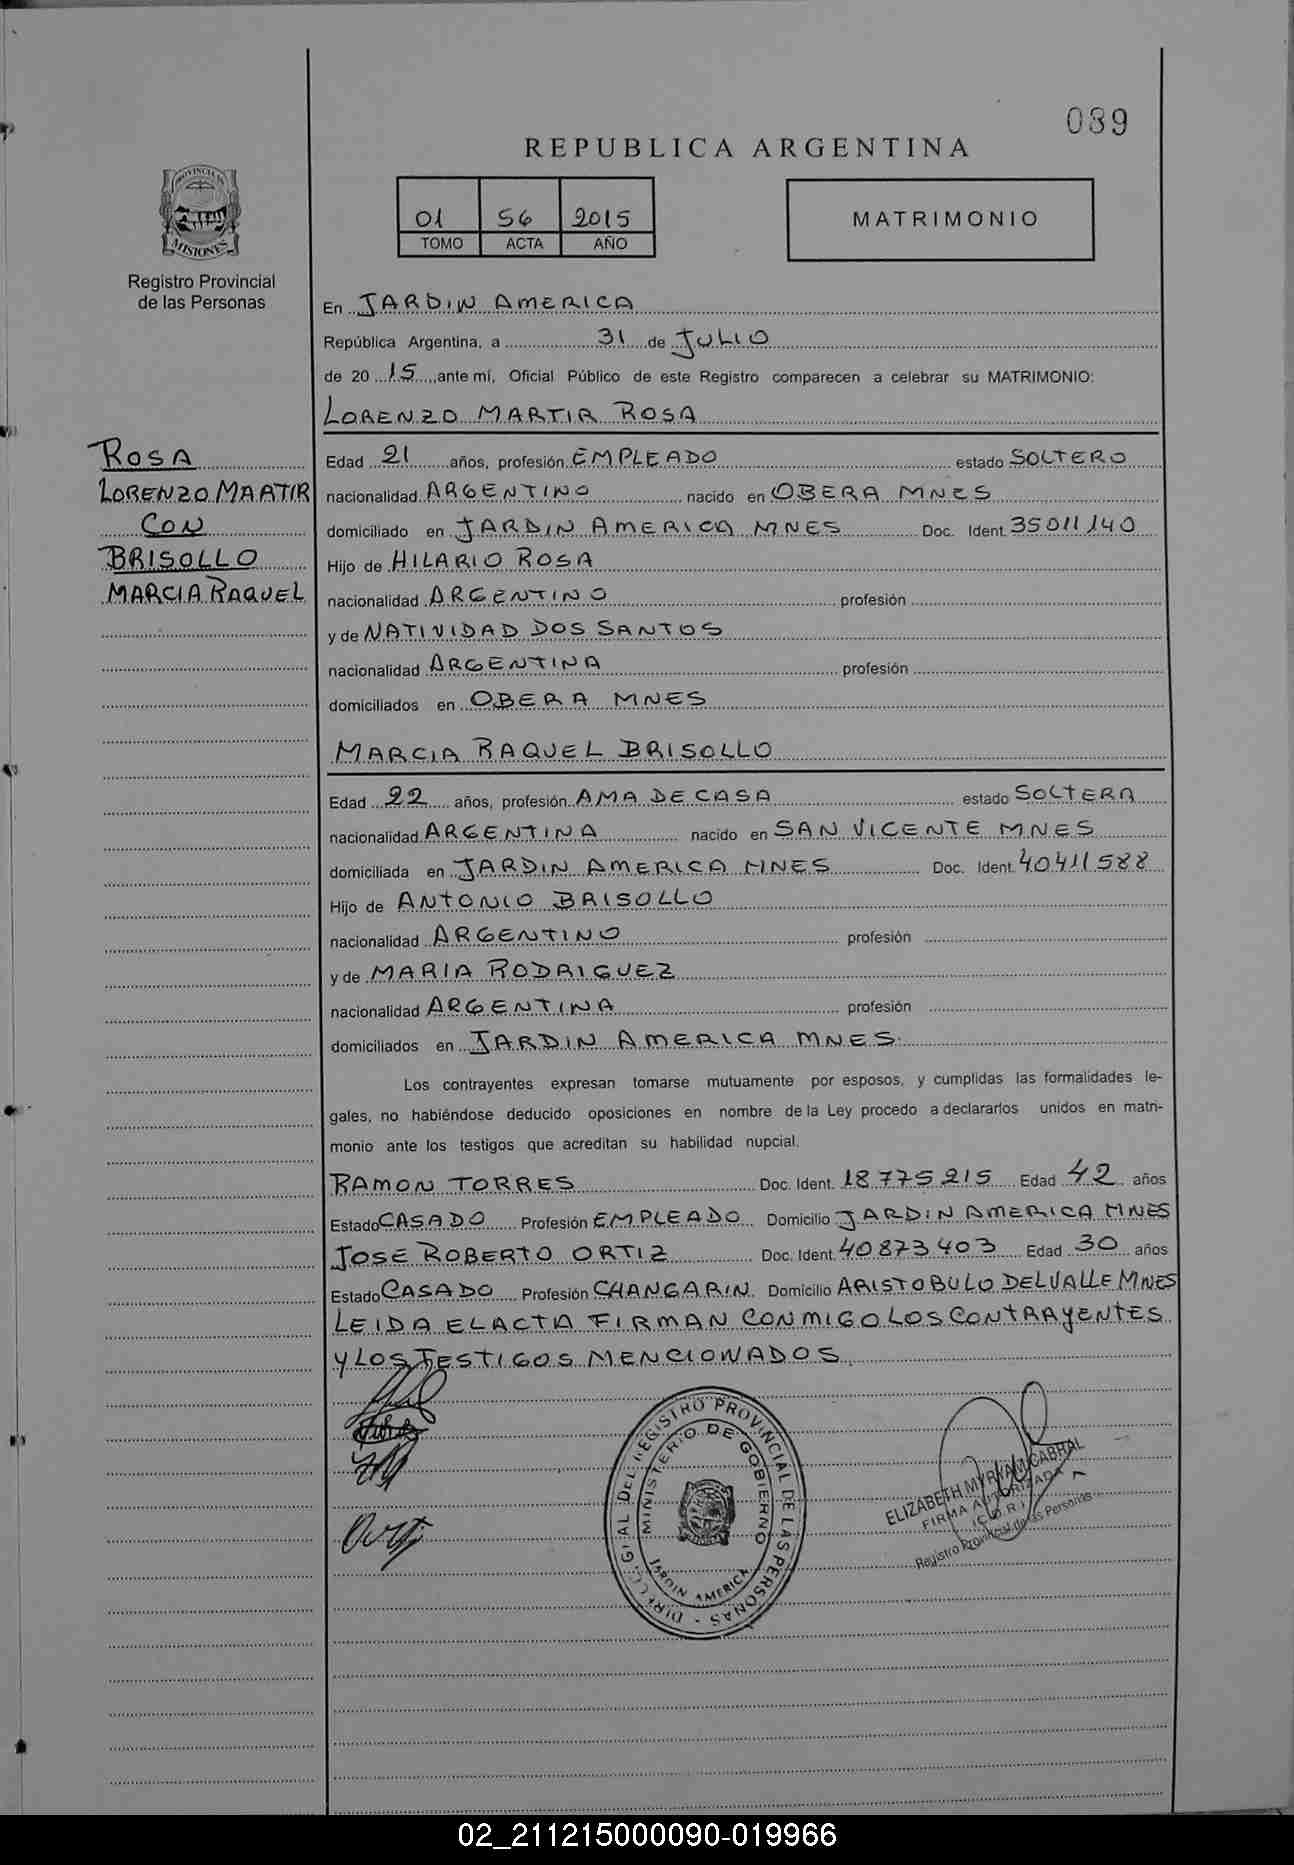 039
REPUBLICA ARGENTINA
01 56 2015
TOMO ACTA AÑO
MATRIMONIO
PROVINCIA DE
MISIONES
Registro Provincial
de las Personas
En JARDIN AMERICA
República Argentina, a 31 de JULIO
de 20 15, ante mí, Oficial Público de este Registro comparecen a celebrar su MATRIMONIO:
LORENZO MARTIR ROSA
ROSA
LORENZO MAARTIR
CON
BRISOLLO
MARCIA RAQUEL
Edad 21 años, profesión EMPLEADO estado SOLTERO
nacionalidad ARGENTINO nacido en OBERA MNES
domiciliado en JARDIN AMERICA MNES Doc. Ident. 35011140
Hijo de HILARIO ROSA
nacionalidad ARGENTINO profesión
y de NATIVIDAD DOS SANTOS
nacionalidad ARGENTINA profesión
domiciliados en OBERA MNES
MARCIA RAQUEL BRISOLLO
Edad 22 años, profesión AMA DE CASA estado SOLTERA
nacionalidad ARGENTINA nacido en SAN VICENTE MNES
domiciliada en JARDIN AMERICA MNES Doc. Ident. 40411588
Hijo de ANTONIO BRISOLLO
nacionalidad ARGENTINO profesión
y de MARIA RODRIGUEZ
nacionalidad ARGENTINA profesión
domiciliados en JARDIN AMERICA MNES.
Los contrayentes expresan tomarse mutuamente por esposos, y cumplidas las formalidades le-
gales, no habiéndose deducido oposiciones en nombre de la Ley procedo a declararlos unidos en matri-
monio ante los testigos que acreditan su habilidad nupcial.
RAMON TORRES Doc. Ident. 18.775.215 Edad 42 años
Estado CASADO Profesión EMPLEADO Domicilio JARDIN AMERICA MNES
JOSE ROBERTO ORTIZ Doc. Ident. 40873403 Edad 30 años
Estado CASADO Profesión CHANGARIN Domicilio ARISTOBULO DELVALLE MNES
LEIDA EL ACTA FIRMAN CONMIGO LOS CONTRAYENTES
Y LOS TESTIGOS MENCIONADOS.
DIREC. GRAL DEL REGISTRO PROVINCIAL DE LAS PERSONAS
MINISTERIO DE GOBIERNO
JARDIN AMERICA
ELIZABETH MYRYAM CABRAL
FIRMA AUTORIZADA
Registro Provincial de las Personas
02_211215000090-019966